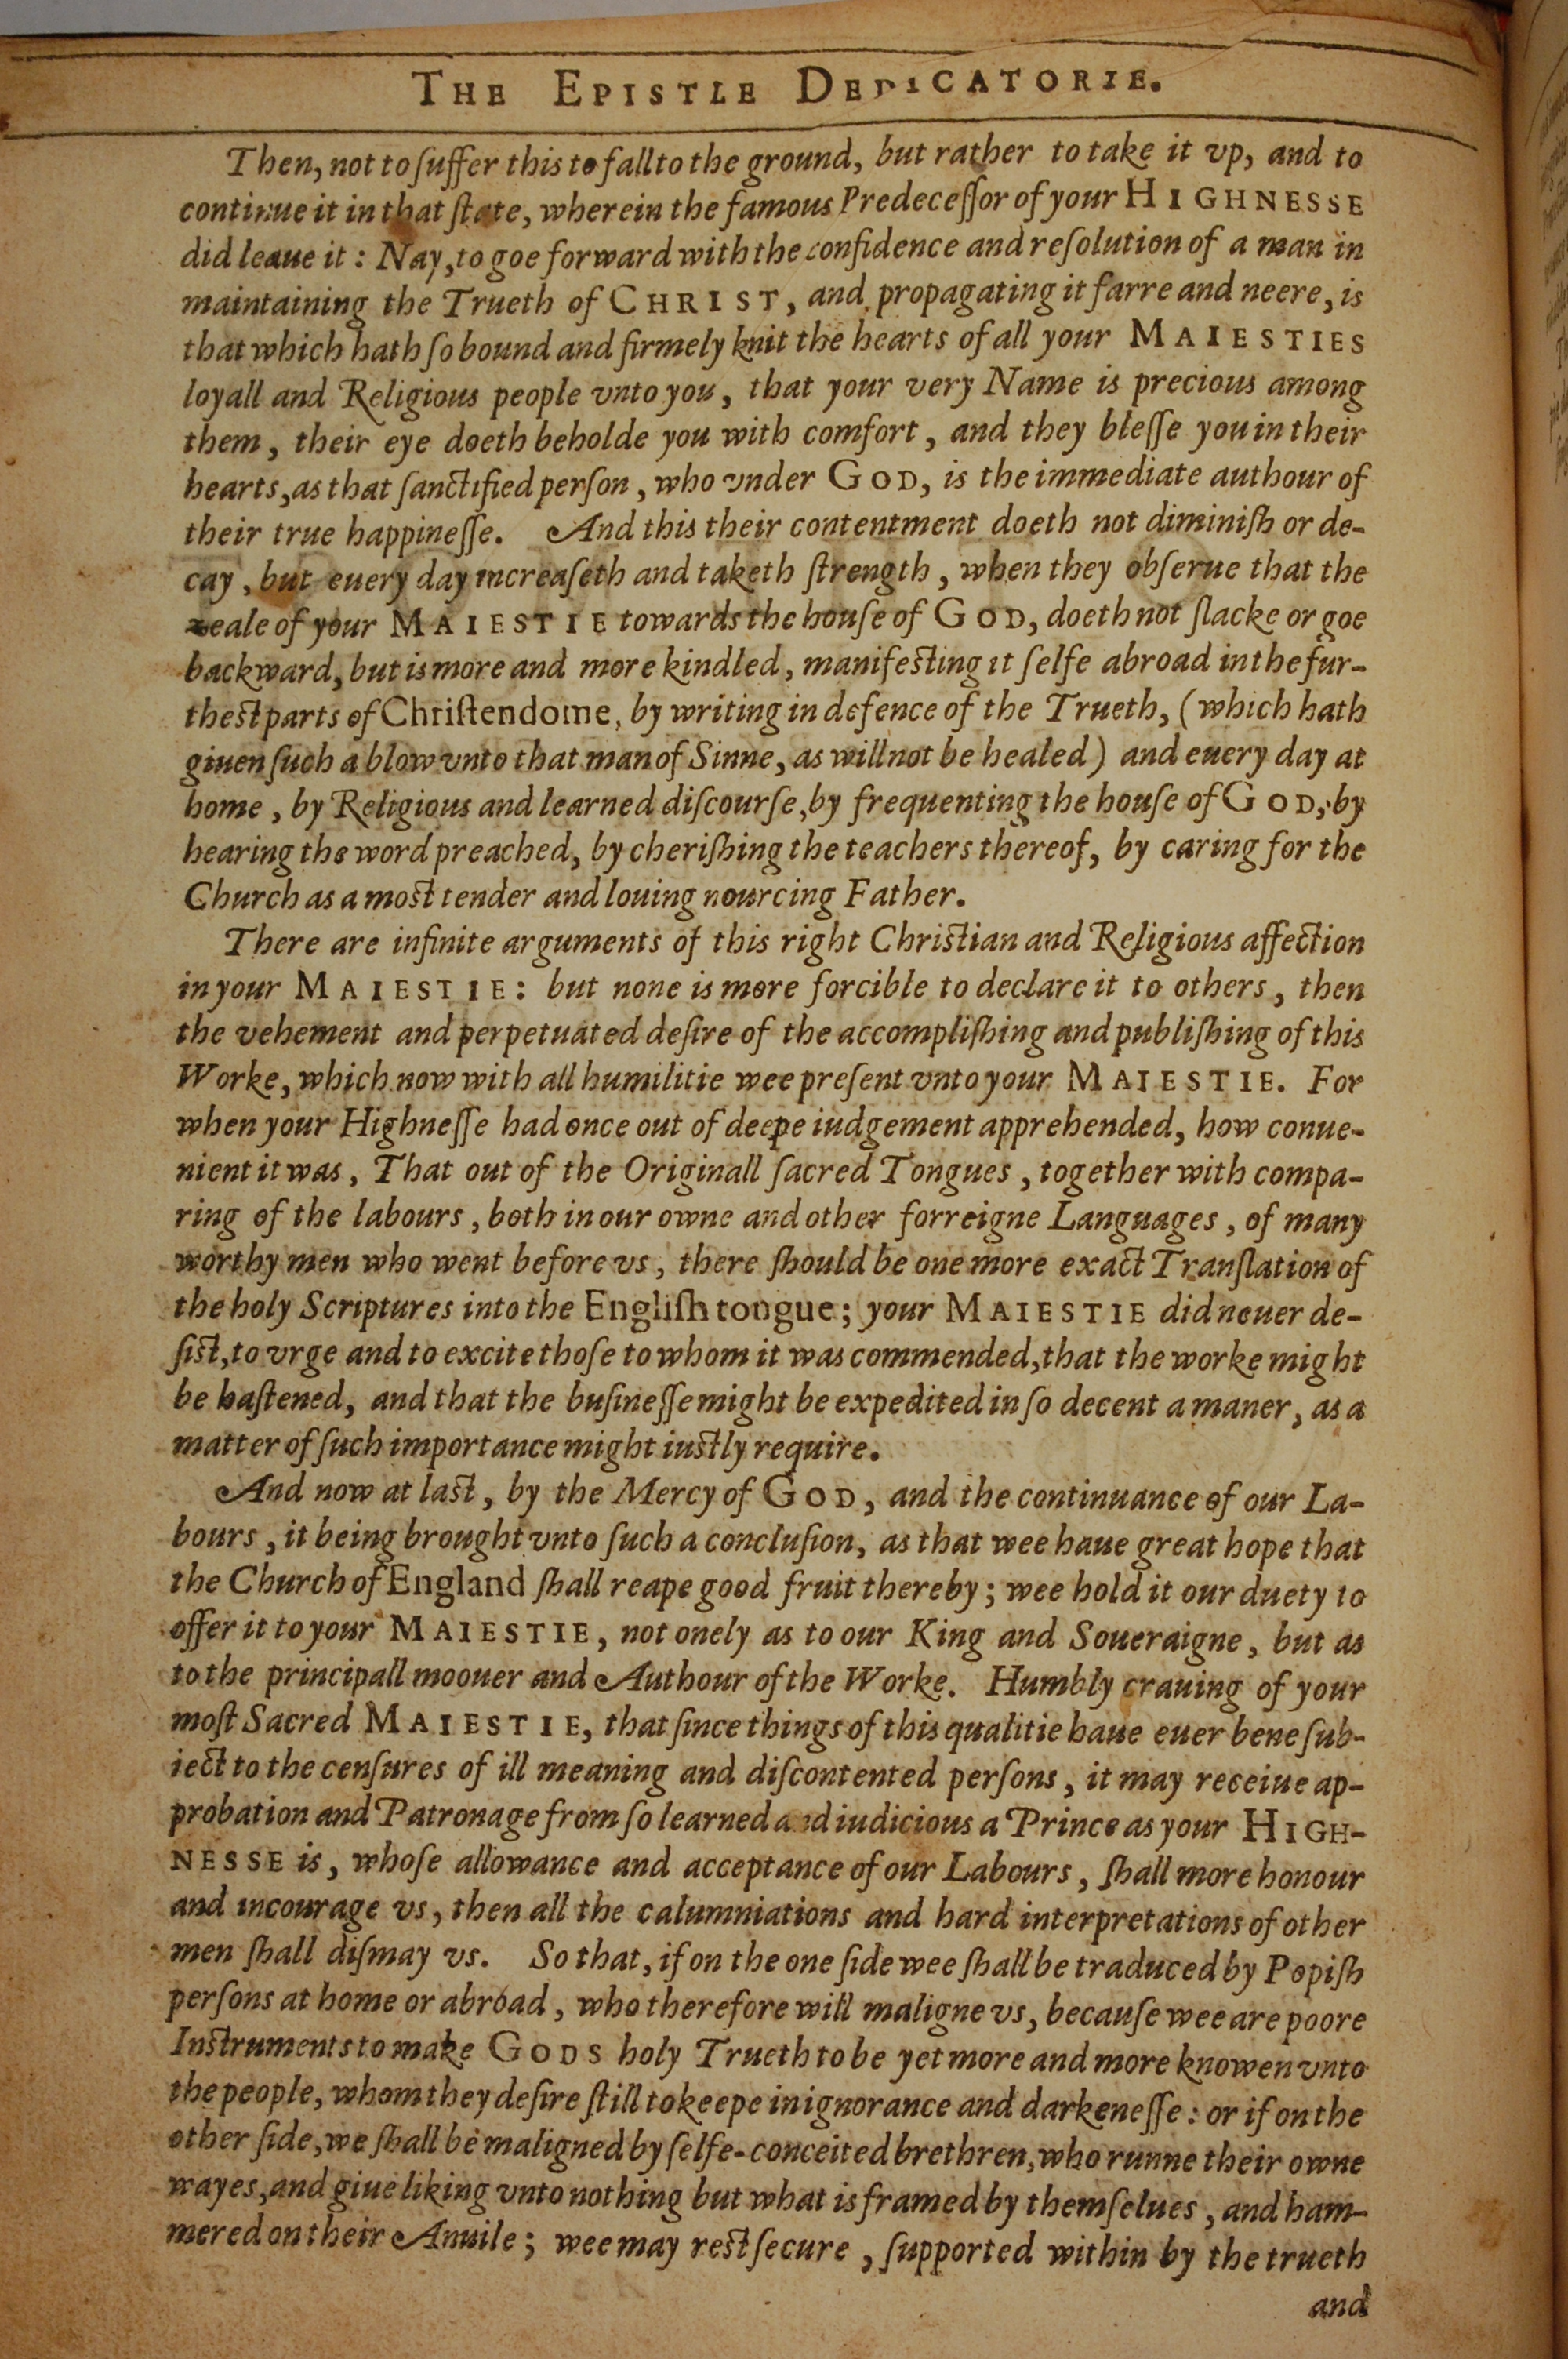 THE EPISTLE DEDICATORIE.
Then, not to ſuffer this to fall to the ground, but rather to take it vp, and to
continue it in that ſtate, wherein the famous Predeceſſor of your HIGHNESSE
did leaue it: Nay, to goe forward with the confidence and reſolution of a man in
maintaining the Trueth of CHRIST, and propagating it farre and neere, is
that which hath ſo bound and firmely knit the hearts of all your MAIESTIES
loyall and Religious people vnto you, that your very Name is precious among
them, their eye doeth beholde you with comfort, and they bleſſe you in their
hearts, as that ſanctified perſon, who vnder GOD, is the immediate authour of
their true happineſſe. And this their contentment doeth not diminiſh or de-
cay, but euery day increaſeth and taketh ſtrength, when they obſerue that the
zeale of your MAIESTIE towards the houſe of GOD, doeth not ſlacke or goe
backward, but is more and more kindled, manifeſting it ſelfe abroad in the fur-
theſt parts of Chriſtendome, by writing in defence of the Trueth, (which hath
giuen ſuch a blow vnto that man of Sinne, as will not be healed) and euery day at
home, by Religious and learned diſcourſe, by frequenting the houſe of GOD, by
hearing the word preached, by cheriſhing the teachers thereof, by caring for the
Church as a moſt tender and louing nourcing Father.
There are infinite arguments of this right Chriſtian and Religious affection
in your MAIESTIE: but none is more forcible to declare it to others, then
the vehement and perpetuated deſire of the accompliſhing and publiſhing of this
Worke, which now with all humilitie wee preſent vnto your MAIESTIE. For
when your Highneſſe had once out of deepe iudgement apprehended, how conue-
nient it was, That out of the Originall ſacred Tongues, together with compa-
ring of the labours, both in our owne and other forreigne Languages, of many
worthy men who went before vs, there ſhould be one more exact Tranſlation of
the holy Scriptures into the Engliſh tongue; your MAIESTIE did neuer de-
ſiſt, to vrge and to excite thoſe to whom it was commended, that the worke might
be haſtened, and that the buſineſſe might be expedited in ſo decent a maner, as a
matter of ſuch importance might iuſtly require.
And now at laſt, by the Mercy of GOD, and the continuance of our La-
bours, it being brought vnto ſuch a concluſion, as that wee haue great hope that
the Church of England ſhall reape good fruit thereby; wee hold it our duety to
offer it to your MAIESTIE, not onely as to our King and Soueraigne, but as
to the principall moouer and Authour of the Worke. Humbly crauing of your
moſt Sacred MAIESTIE, that ſince things of this qualitie haue euer bene ſub-
iect to the cenſures of ill meaning and diſcontented perſons, it may receiue ap-
probation and Patronage from ſo learned and iudicious a Prince as your HIGH-
NESSE is, whoſe allowance and acceptance of our Labours, ſhall more honour
and incourage vs, then all the calumniations and hard interpretations of other
men ſhall diſmay vs. So that, if on the one ſide wee ſhall be traduced by Popiſh
perſons at home or abroad, who therefore will maligne vs, becauſe wee are poore
Inſtruments to make GODS holy Trueth to be yet more and more knowen vnto
the people, whom they deſire ſtill to keepe in ignorance and darkeneſſe: or if on the
other ſide, we ſhall be maligned by ſelfe-conceited brethren, who runne their owne
wayes, and giue liking vnto nothing but what is framed by themſelues, and ham-
mered on their Anuile; wee may reſt ſecure, ſupported within by the trueth
and